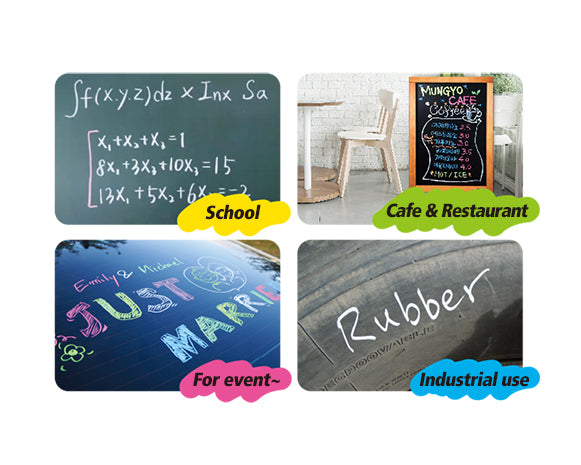 ∫f(x.y.z)dz × Inx Sa
x₁+x₂+x₃=1
8x₁+3x₂+10x₃=15
13x₁+5x₂+6x₃=-2
School
MUNGYO
CAFE
Coffee
2.5
3.0
3.0
3.5
4.0
4.0
HOT/ICE
Cafe & Restaurant
Emily & Michael
JUST
MARRE
For event~
Rubber
REGROOVABLE
Industrial use